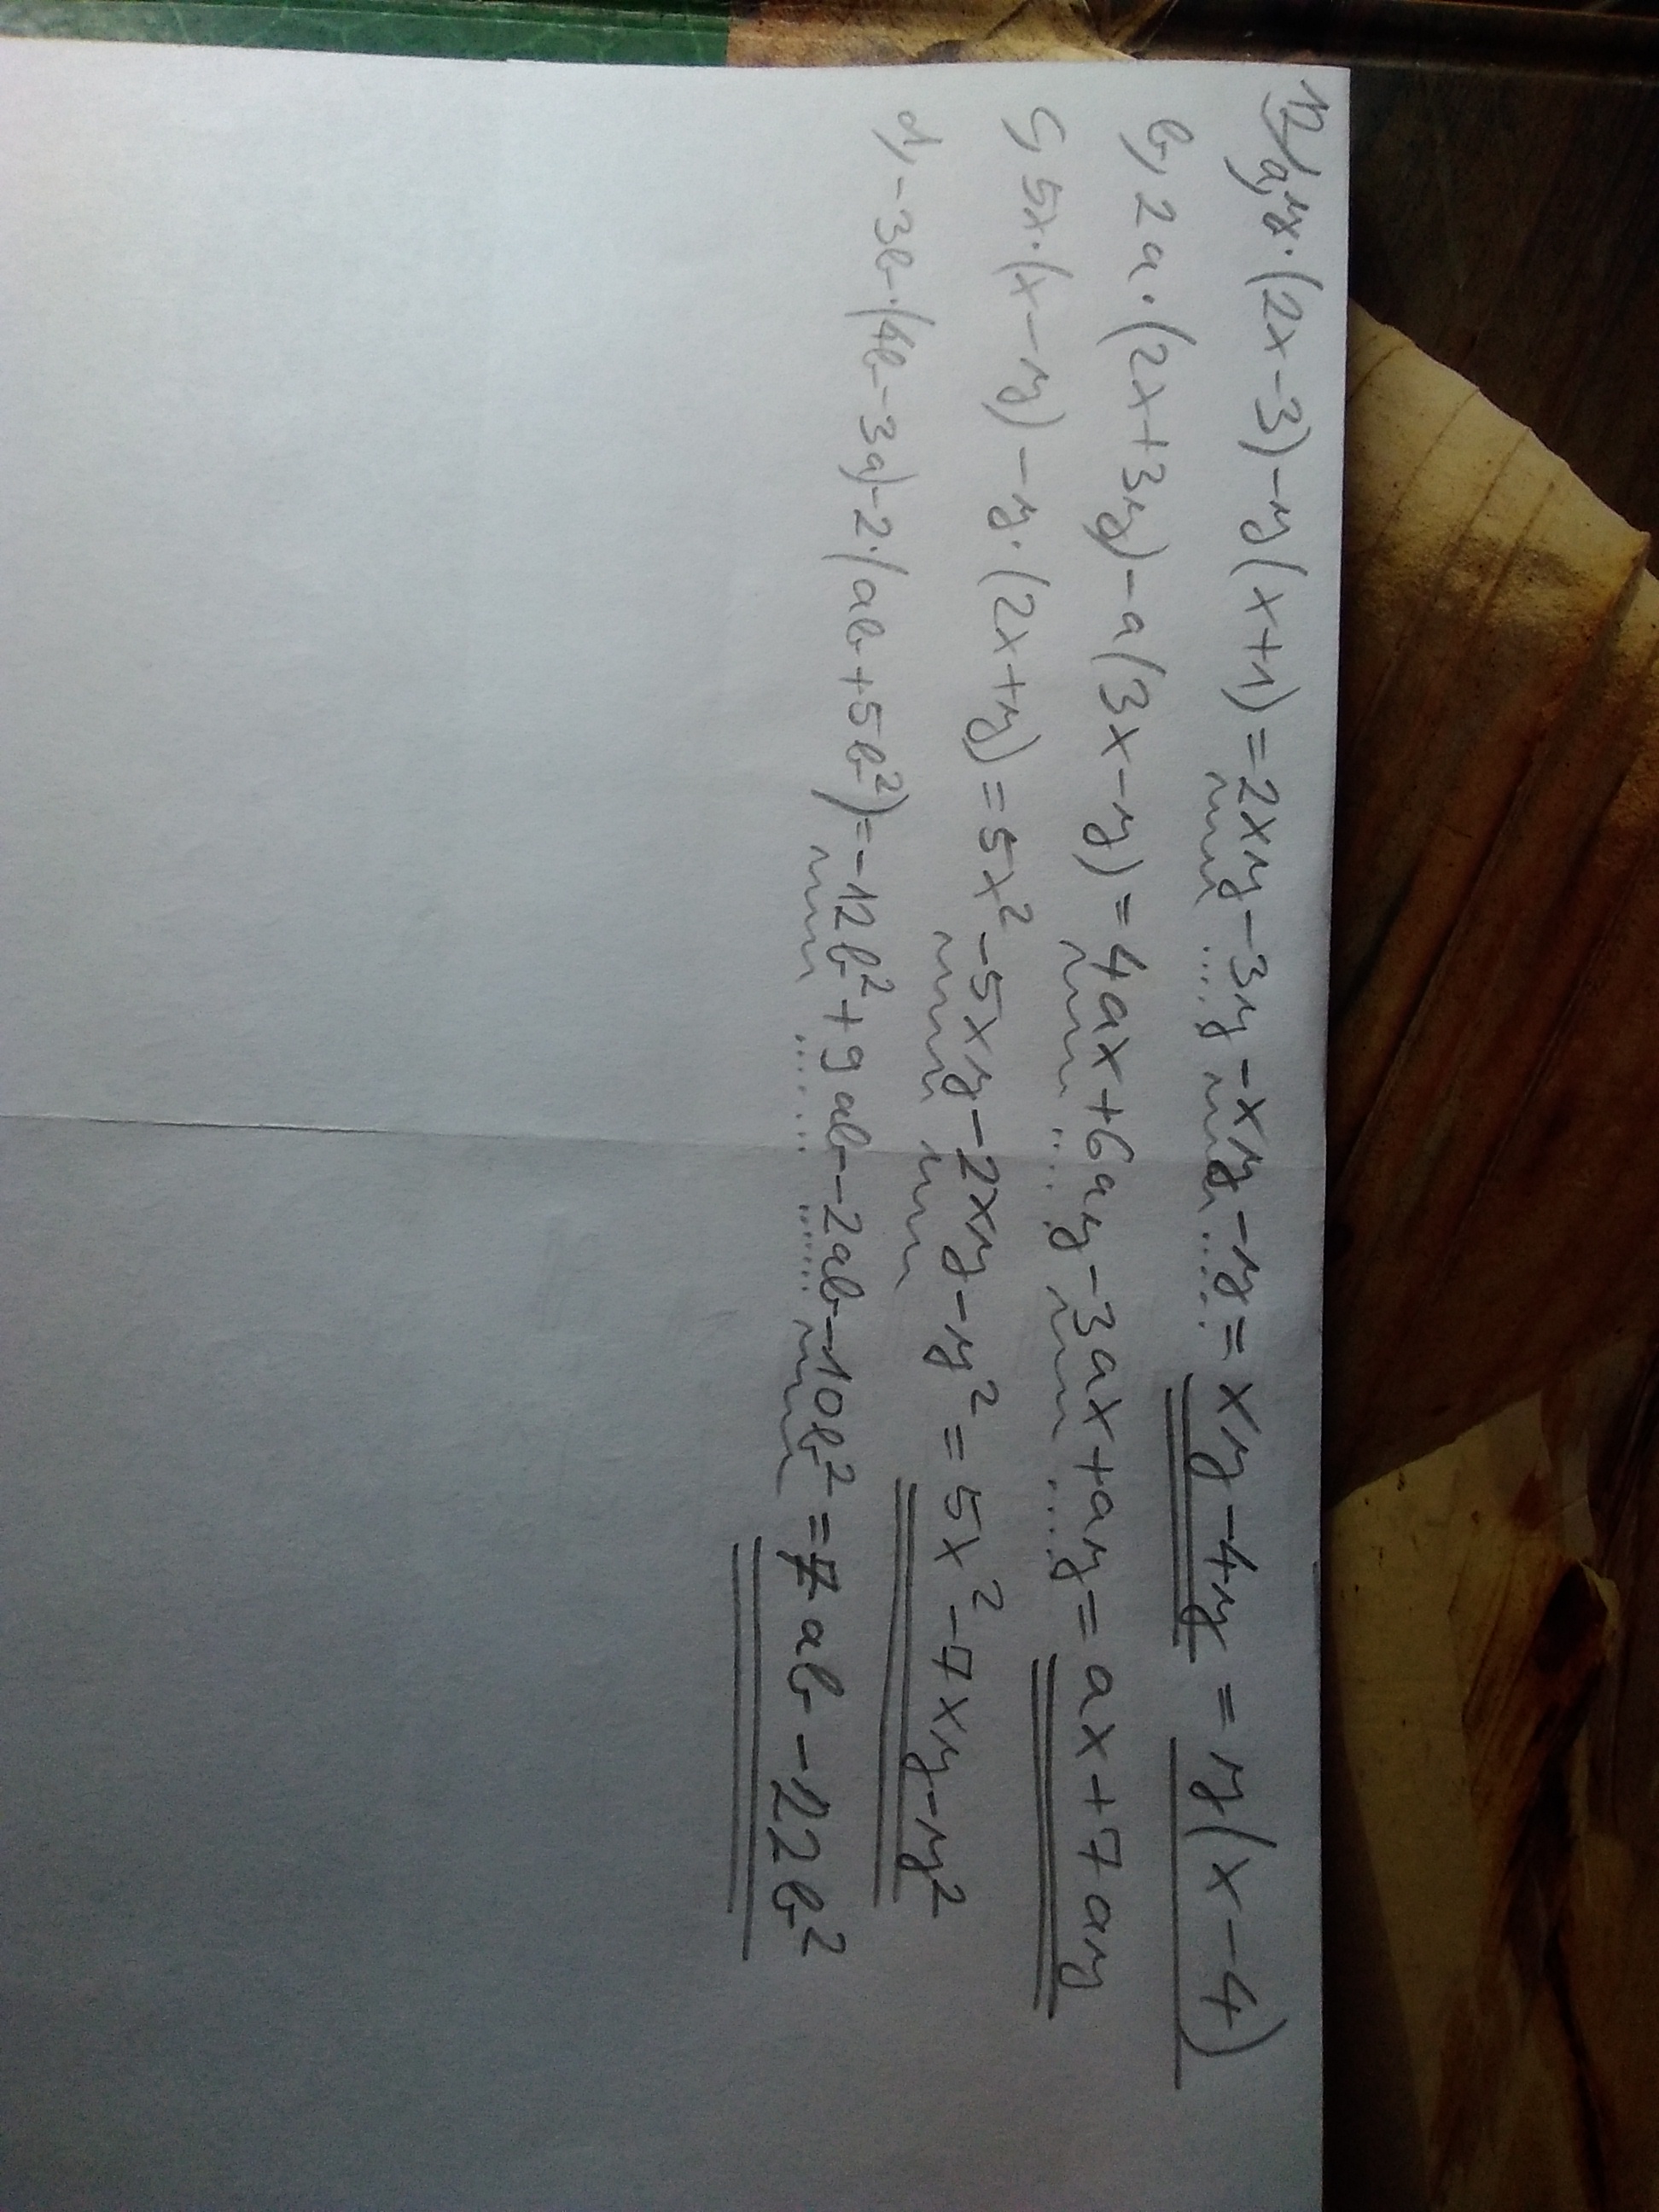 12/ a, y·(2x-3)-y(x+1)=2xy-3y-xy-y=xy-4y=y(x-4)
b, 2a·(2x+3y)-a(3x-y)=4ax+6ay-3ax+ay=ax+7ay
c, 5x·(x-y)-y·(2x+y)=5x²-5xy-2xy-y²=5x²-7xy-y²
d, -3b·(4b-3a)-2·(ab+5b²)=-12b²+9ab-2ab-10b²=7ab-22b²